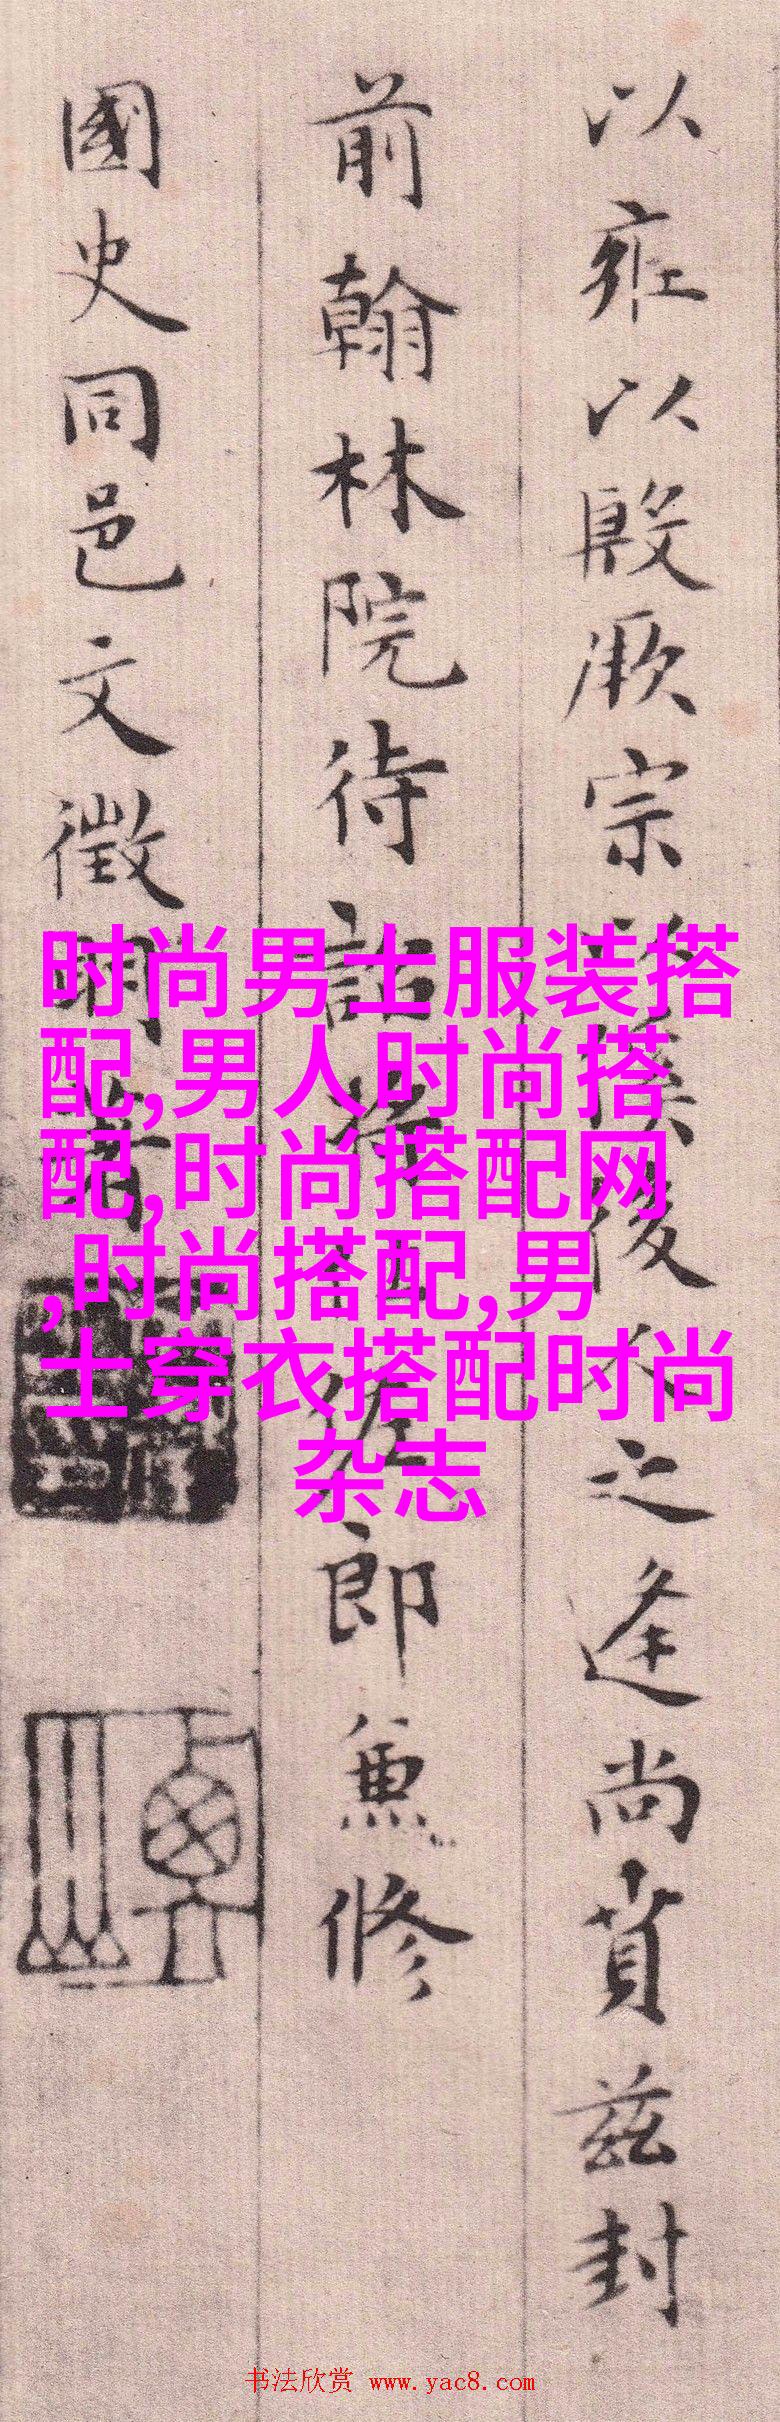 以雍以殷厥宗以俟後人之逢尚賁茲封
前翰林院待詔将仕佐郎兼修
國史同邑文徵明著
时尚男士服装搭
配,男人时尚搭
配,时尚搭配网
,时尚搭配,男
士穿衣搭配时尚
杂志
书法欣赏 www.yac8.com